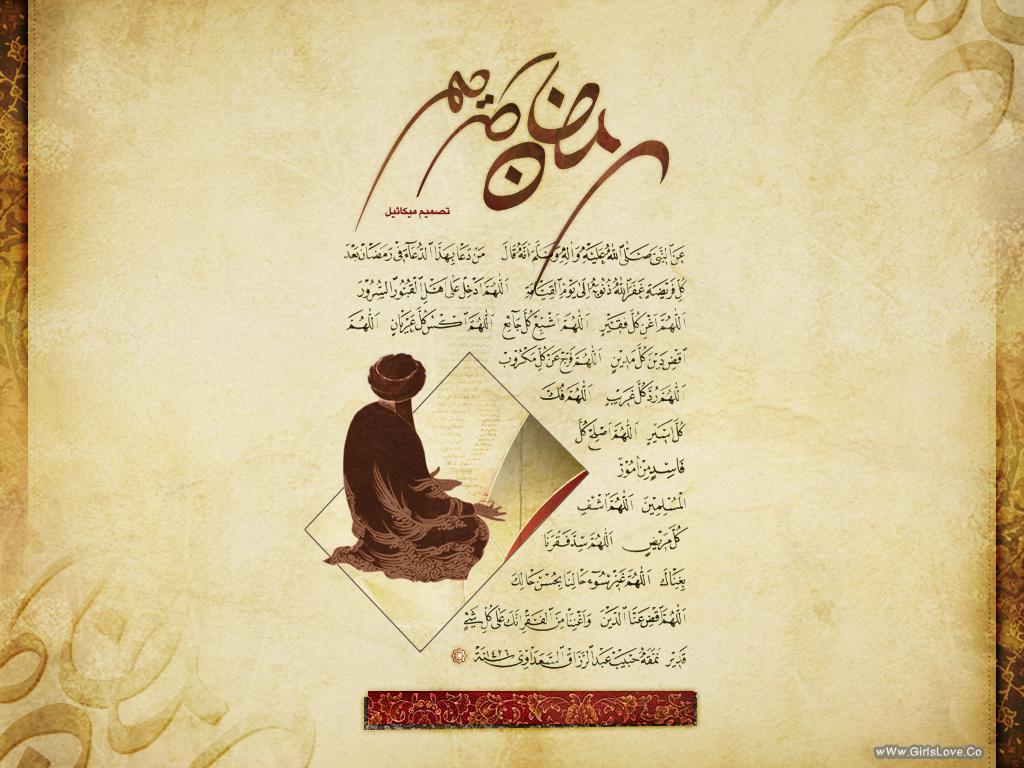 رمضان كريم
تصميم ميكائيل
عَنِ النَّبِيِّ صَلَّى اللهُ عَلَيْهِ وَآلِهِ وَسَلَّمَ أَنَّهُ قَالَ مَنْ دَعَا بِهٰذَا الدُّعَاءِ فِي رَمَضَانَ بَعْدَ
كُلِّ فَرِيضَةٍ غَفَرَ اللهُ ذُنُوبَهُ إِلَى يَوْمِ الْقِيَامَةِ اَللّٰهُمَّ أَدْخِلْ عَلَى أَهْلِ الْقُبُورِ السُّرُورَ
اَللّٰهُمَّ أَغْنِ كُلَّ فَقِيرٍ اَللّٰهُمَّ أَشْبِعْ كُلَّ جَائِعٍ اَللّٰهُمَّ اكْسُ كُلَّ عُرْيَانٍ اَللّٰهُمَّ
اقْضِ دَيْنَ كُلِّ مَدِينٍ اَللّٰهُمَّ فَرِّجْ عَنْ كُلِّ مَكْرُوبٍ
اَللّٰهُمَّ رُدَّ كُلَّ غَرِيبٍ اَللّٰهُمَّ فُكَّ
كُلَّ أَسِيرٍ اَللّٰهُمَّ أَصْلِحْ كُلَّ
فَاسِدٍ مِنْ أُمُورِ
الْمُسْلِمِينَ اَللّٰهُمَّ اشْفِ
كُلَّ مَرِيضٍ اَللّٰهُمَّ سُدَّ فَقْرَنَا
بِغِنَاكَ اَللّٰهُمَّ غَيِّرْ سُوءَ حَالِنَا بِحُسْنِ حَالِكَ
اَللّٰهُمَّ اقْضِ عَنَّا الدَّيْنَ وَأَغْنِنَا مِنَ الْفَقْرِ إِنَّكَ عَلَى كُلِّ شَيْءٍ
قَدِيرٌ نَمَّقَهُ حَبِيب عَبْدالرَّزَّاق السَّعْدَاوِي سَنَة ١٤٢٦
wWw.GirlsLove.Co